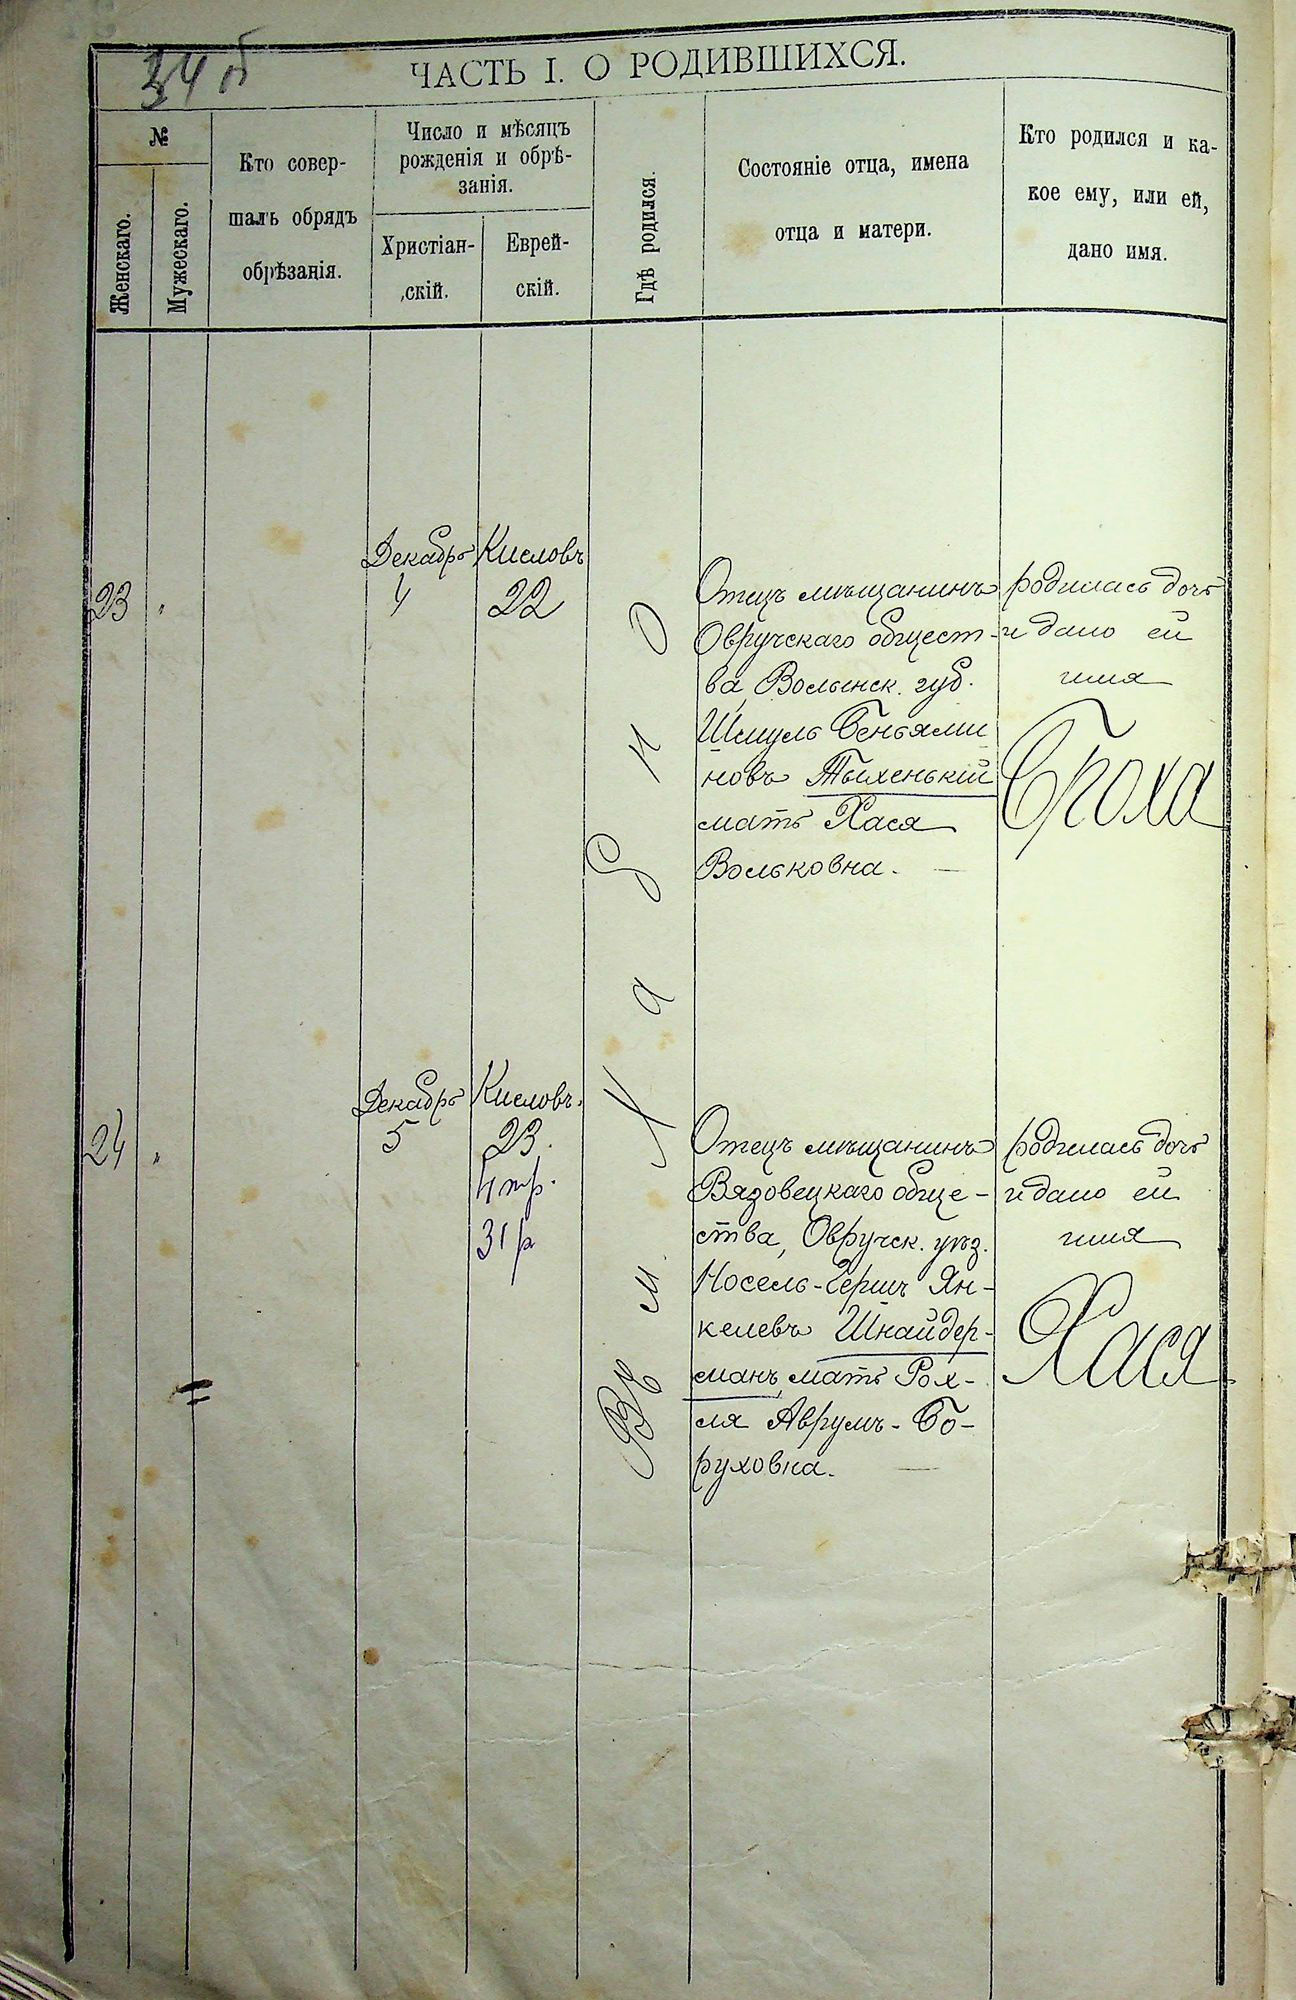 34 б
ЧАСТЬ I. О РОДИВШИХСЯ.
№
Женскаго.
Мужескаго.
Кто совер-
шалъ обрядъ
обрѣзанія.
Число и мѣсяцъ
рожденія и обрѣ-
занія.
Христіан-
скій.
Еврей-
скій.
Гдѣ родился.
Состояніе отца, имена
отца и матери.
Кто родился и ка-
кое ему, или ей,
дано имя.
23
"
Декабрь
4
Кисловъ
22
Отецъ мѣщанинъ
Овручскаго общест-
ва, Волынск. губ.
Шмуль Беньями
новъ Тыхенький
мать Хася
Вольковна. —
родилась дочь
и дано ей
имя
Броха
Въ м. Хабно
24
"
Декабрь
5
Кисловъ.
23.
4 тр.
31 р
Отецъ мѣщанинъ
Вязовецкаго обще-
ства, Овручск. уѣз.
Носель-Герш Ян-
келевъ Шнайдер-
манъ, мать Рох-
ля Аврумъ-Бо-
руховна. —
родилась дочь
и дано ей
имя
Хася